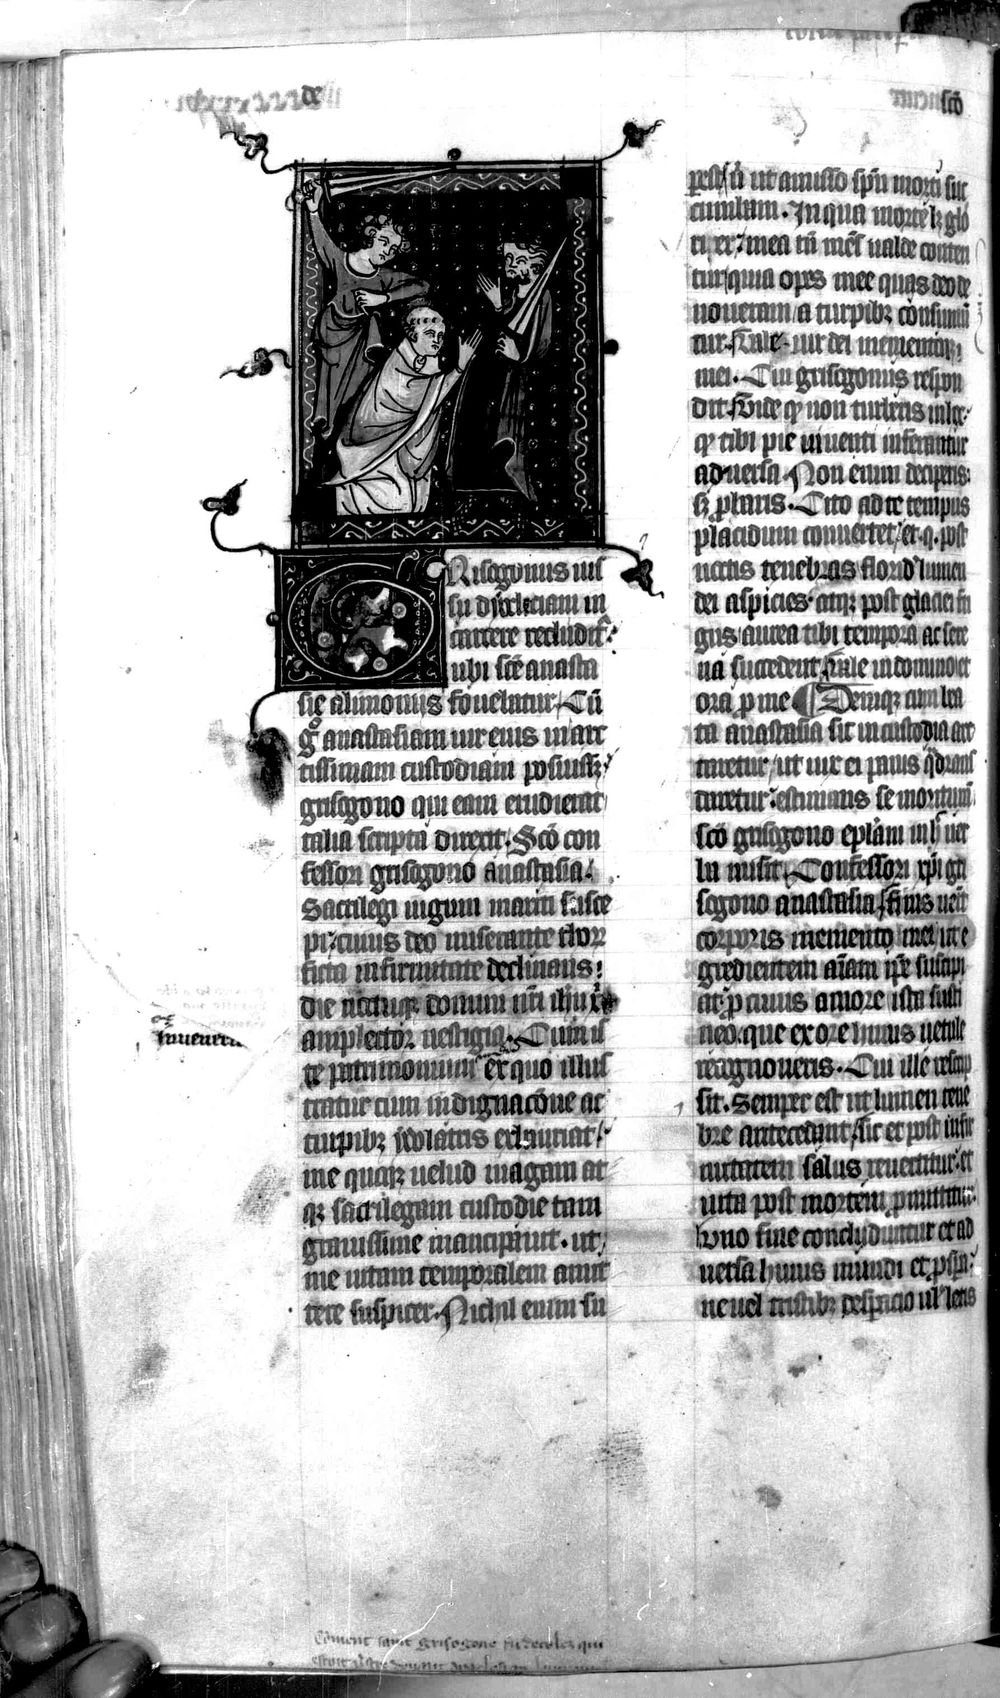 de
scō
Risogonus ius
su dyocletiani in
carcere recluditr̉
ubi scē anasta
sie alimoniis fovebatur. Cū
gͦ anastasiam vir eius in art
tissimam custodiam posuissꝫ
grisogono qui eam erudierat
talia scripta direxit. Scō con
fessori grisogono anastasia.
Sacrilegi iugum mariti susce
pi: cuius deo miserante thorū
ficta infirmitate declinans:
die noctuqꝫ domini nr̄i ih̄u xp̄i
amplector vestigia. Cum is
te patrimonium ex quo illus
tratur cum indignacōne ac
turpibꝫ ydolatris exhauriat
me quoqꝫ velud magam at
qꝫ sacrilegam custodie tam
gravissime mancipavit. ut
me vitam temporalem amit
tere suspicer. Nichil enim su
perest n̄ ut amisso sp̄u morti suc
cumbam. In qua morte lꝫ glo
rier: mea tn̄ mēs valde conten
tur quia opes mee quas deo de
voveram a turpibꝫ consumū
tur. Vale vir dei memento
mei. Cui grisogonus respon
dit. Vide qꝫ non turberis in hoc
qꝫ tibi pie viventi inferantur
adversa. Non enim deciperis:
sꝫ ꝓbaris. Cito ad te tempus
placidum convertet et. q. post
noctis tenebras floridū lumen
dei aspicies. atqꝫ post glaciei fri
gus aurea tibi tempora ac sere
na succedent. Vale in domino et
ora ꝓ me Deniqꝫ cum bea
ta anastasia sic in custodia arc
taretur ut vix ei panis q̄drans
daretur: estimans se morituram
scō grisogono ep̄lam in hūc
modum misit. Confessori xp̄i gri
sogono anastasia. finis venit
corporis memento mei ut e
gredientem aīam ip̄e suscipi
at: ꝓ cuius amore ista susti
neo. que ex ore huius vetule
recognoveris. Cui ille rescrip
sit. Semper est ut lumen tene
bre antecedant sic et post infir
mitatem salus revertitur. et
vita post mortem ꝓmittitur.
Uno fine concluduntur et ad
versa huius mundi et ꝓspera:
Invenerū
Coment saint grisogone fu decoles qui